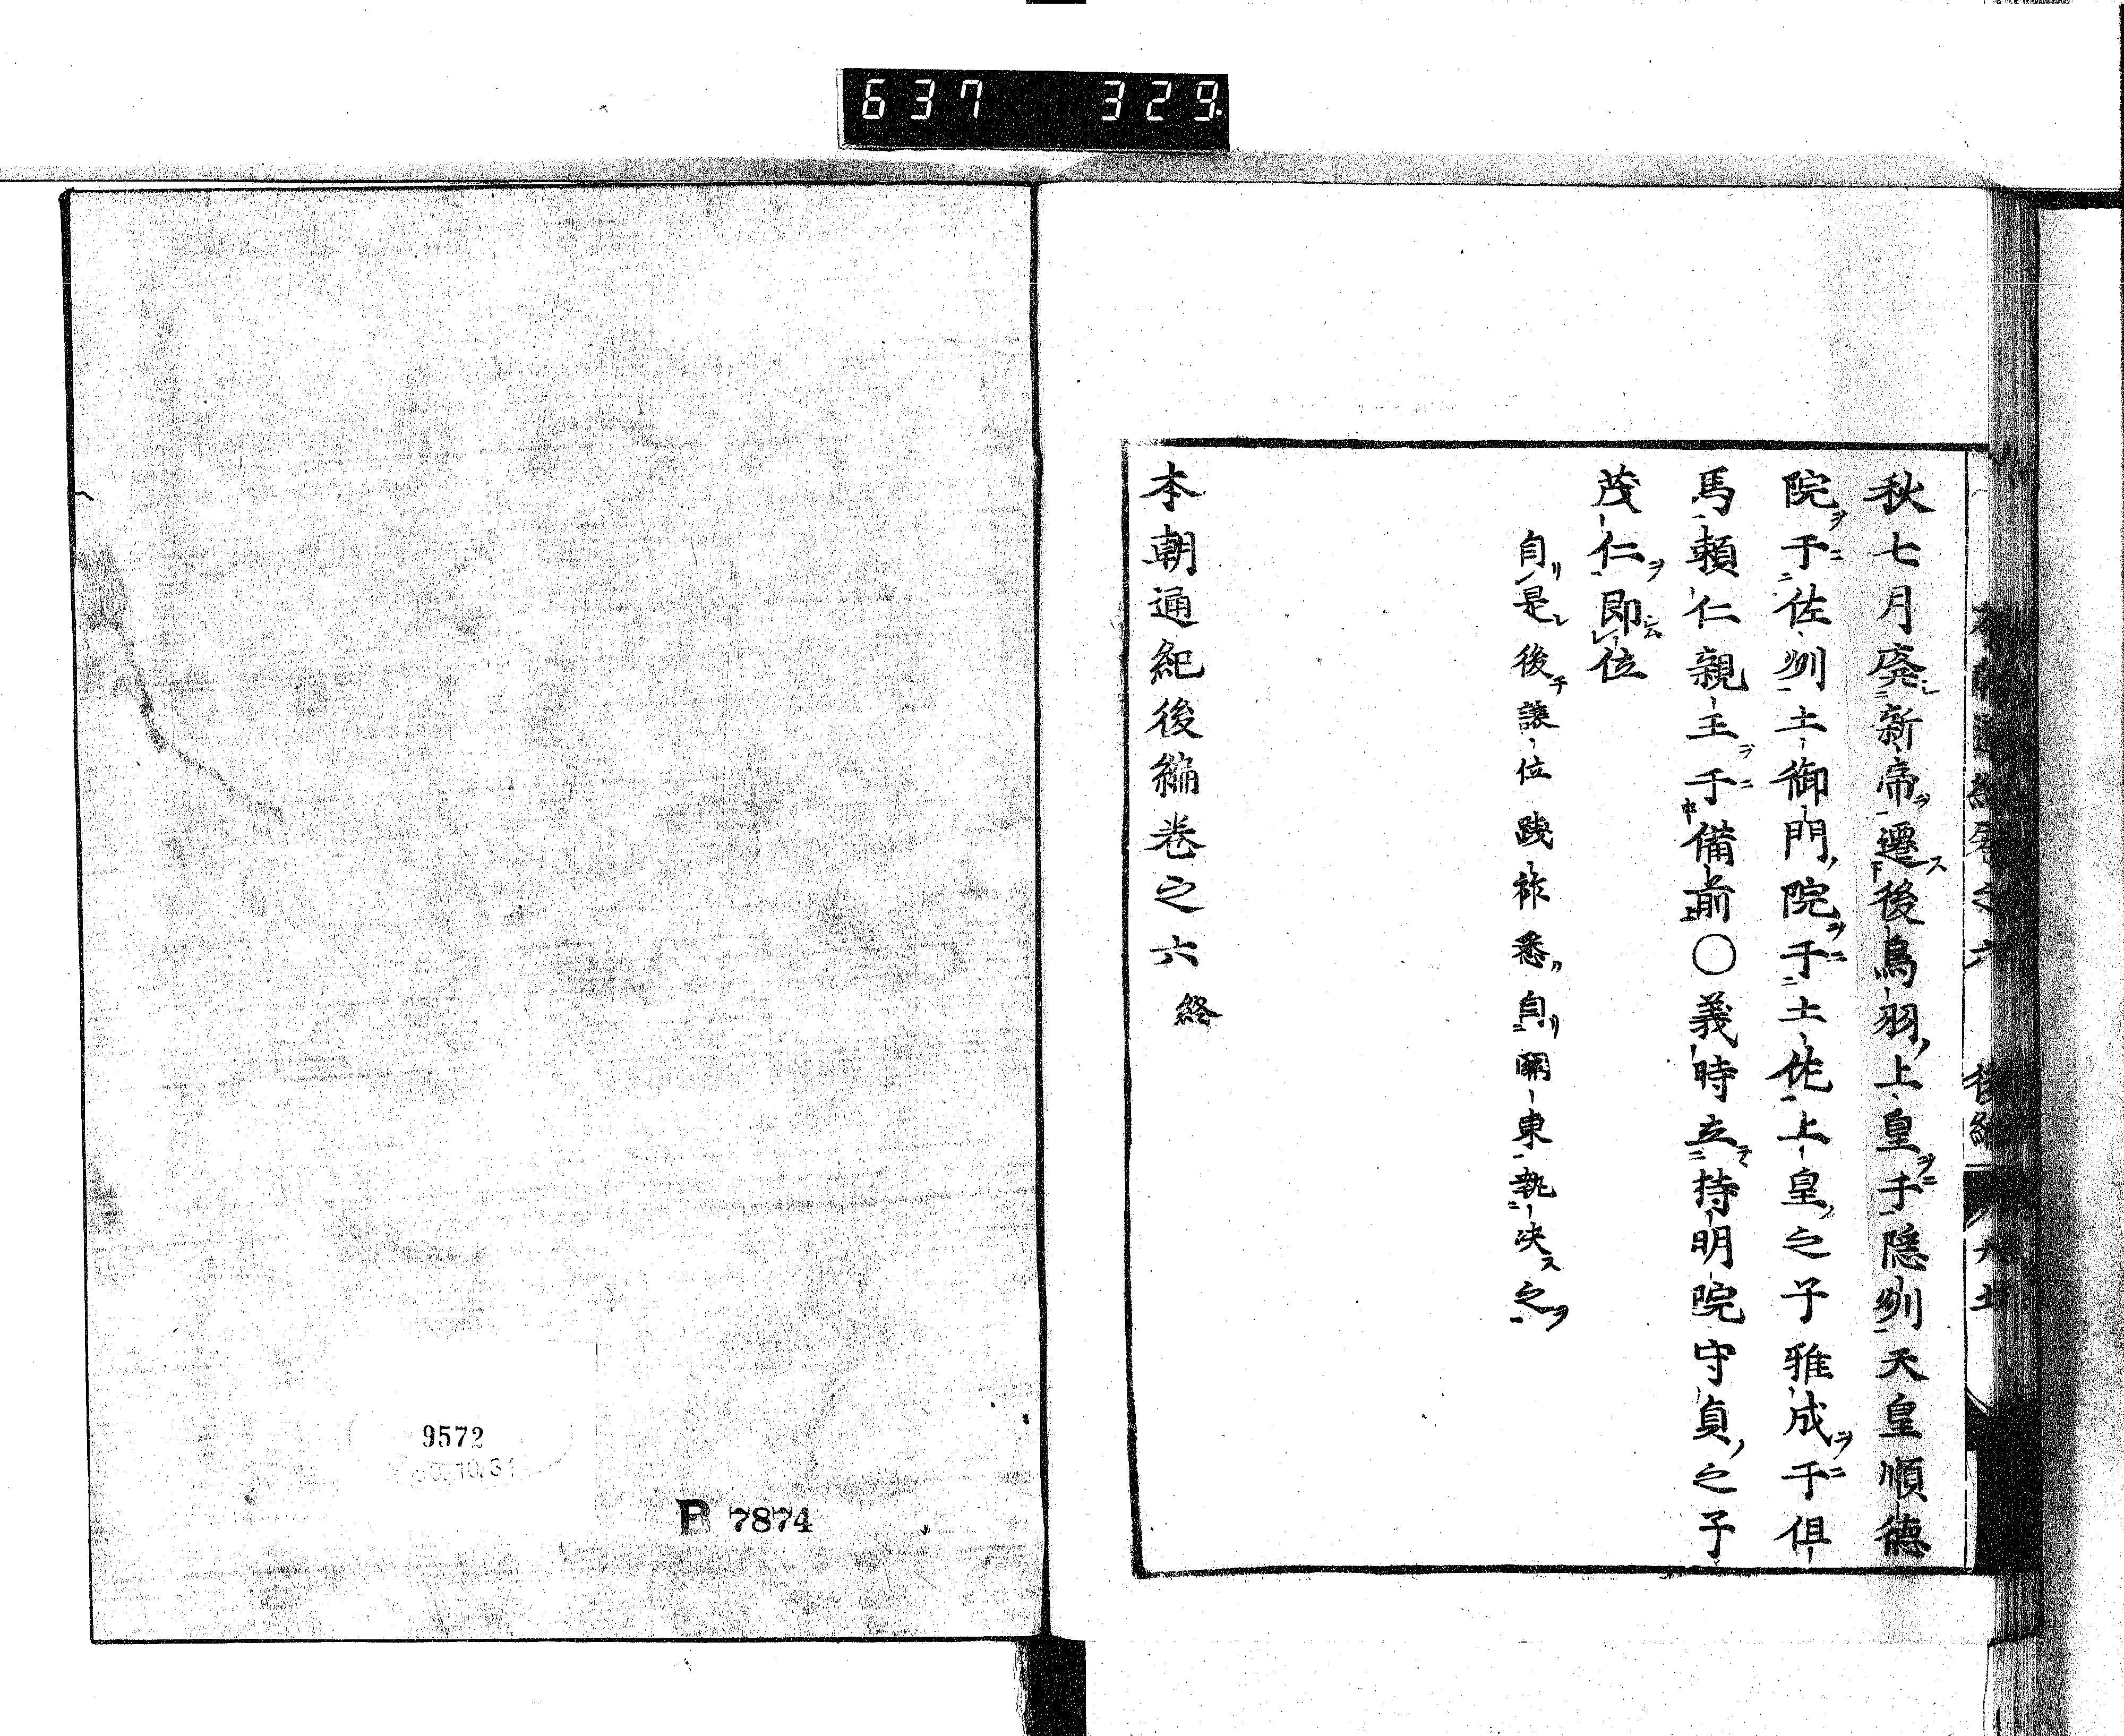 637 329
秋七月廃新帝遷後鳥羽上皇于隠州天皇順徳
院于佐州土御門院于土佐上皇之子雅成于但
馬頼仁親王于備前○義時立持明院守貞之子
茂仁即位
自是後譲位践祚悉自関東執决之
本朝通紀後編巻之六終
9572
P 7874